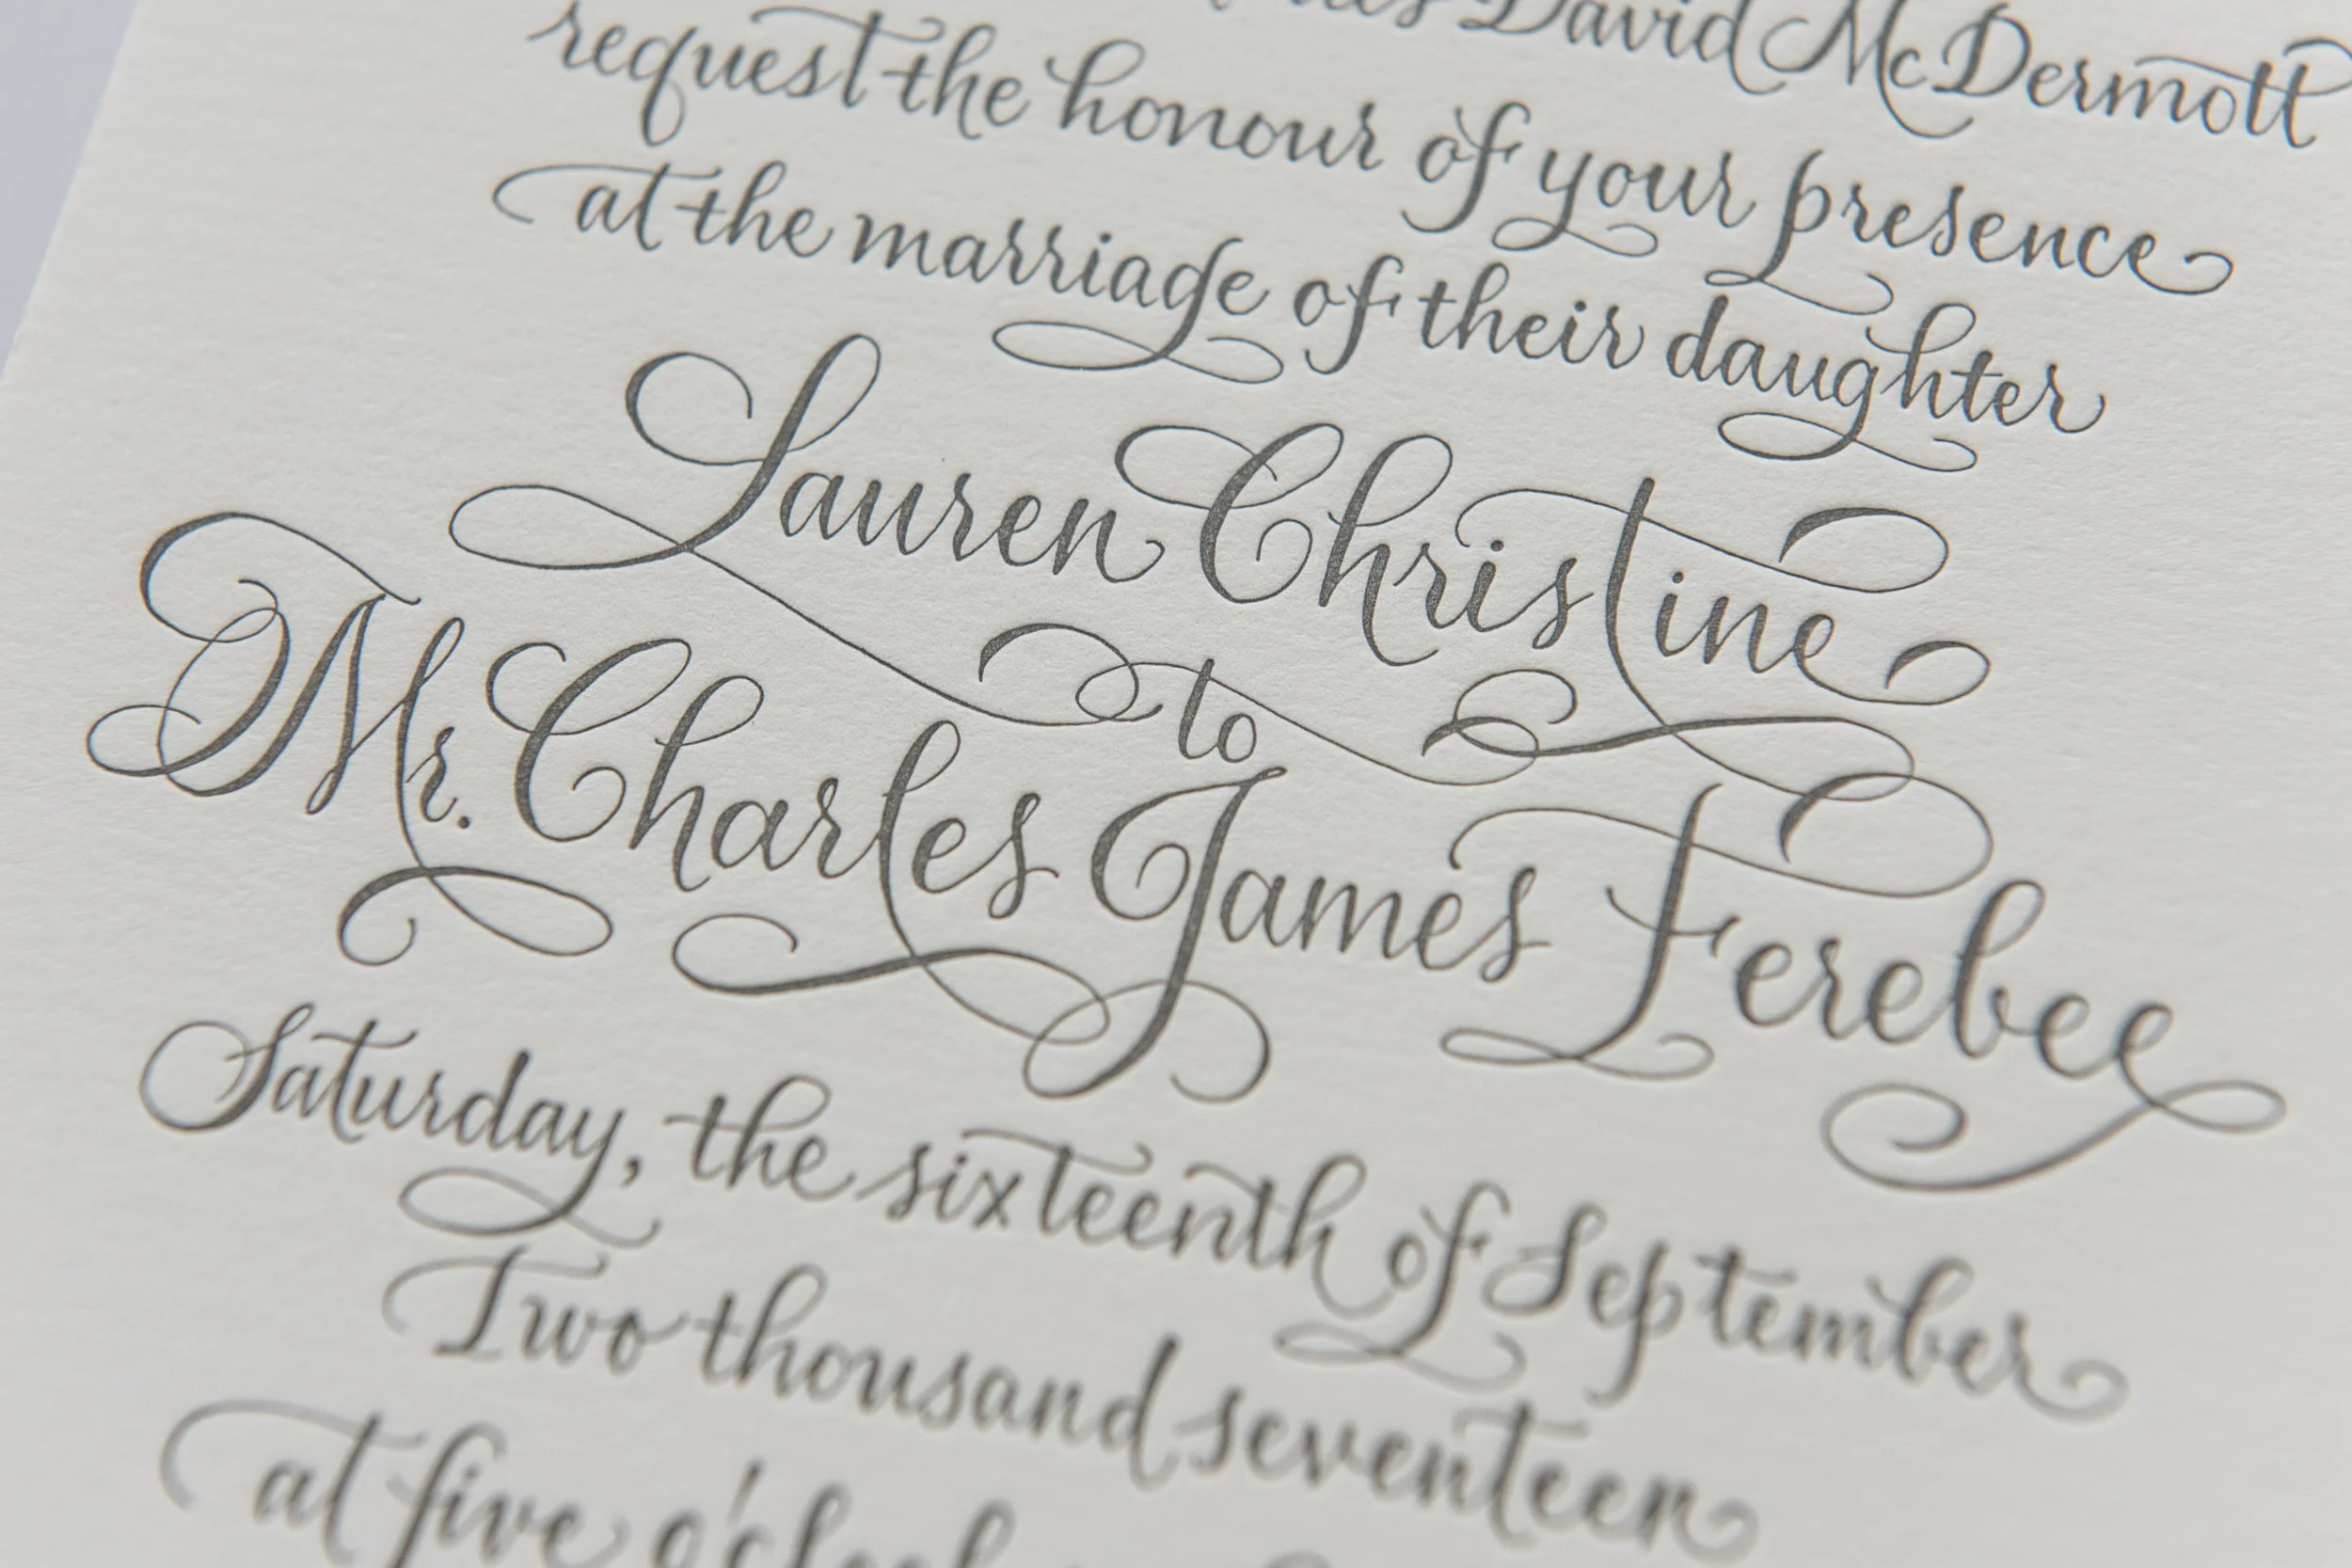 David McDermott
request the honour of your presence
at the marriage of their daughter
Lauren Christine
to
Mr. Charles James Ferebee
Saturday, the sixteenth of September
Two thousand seventeen
at five o'clock